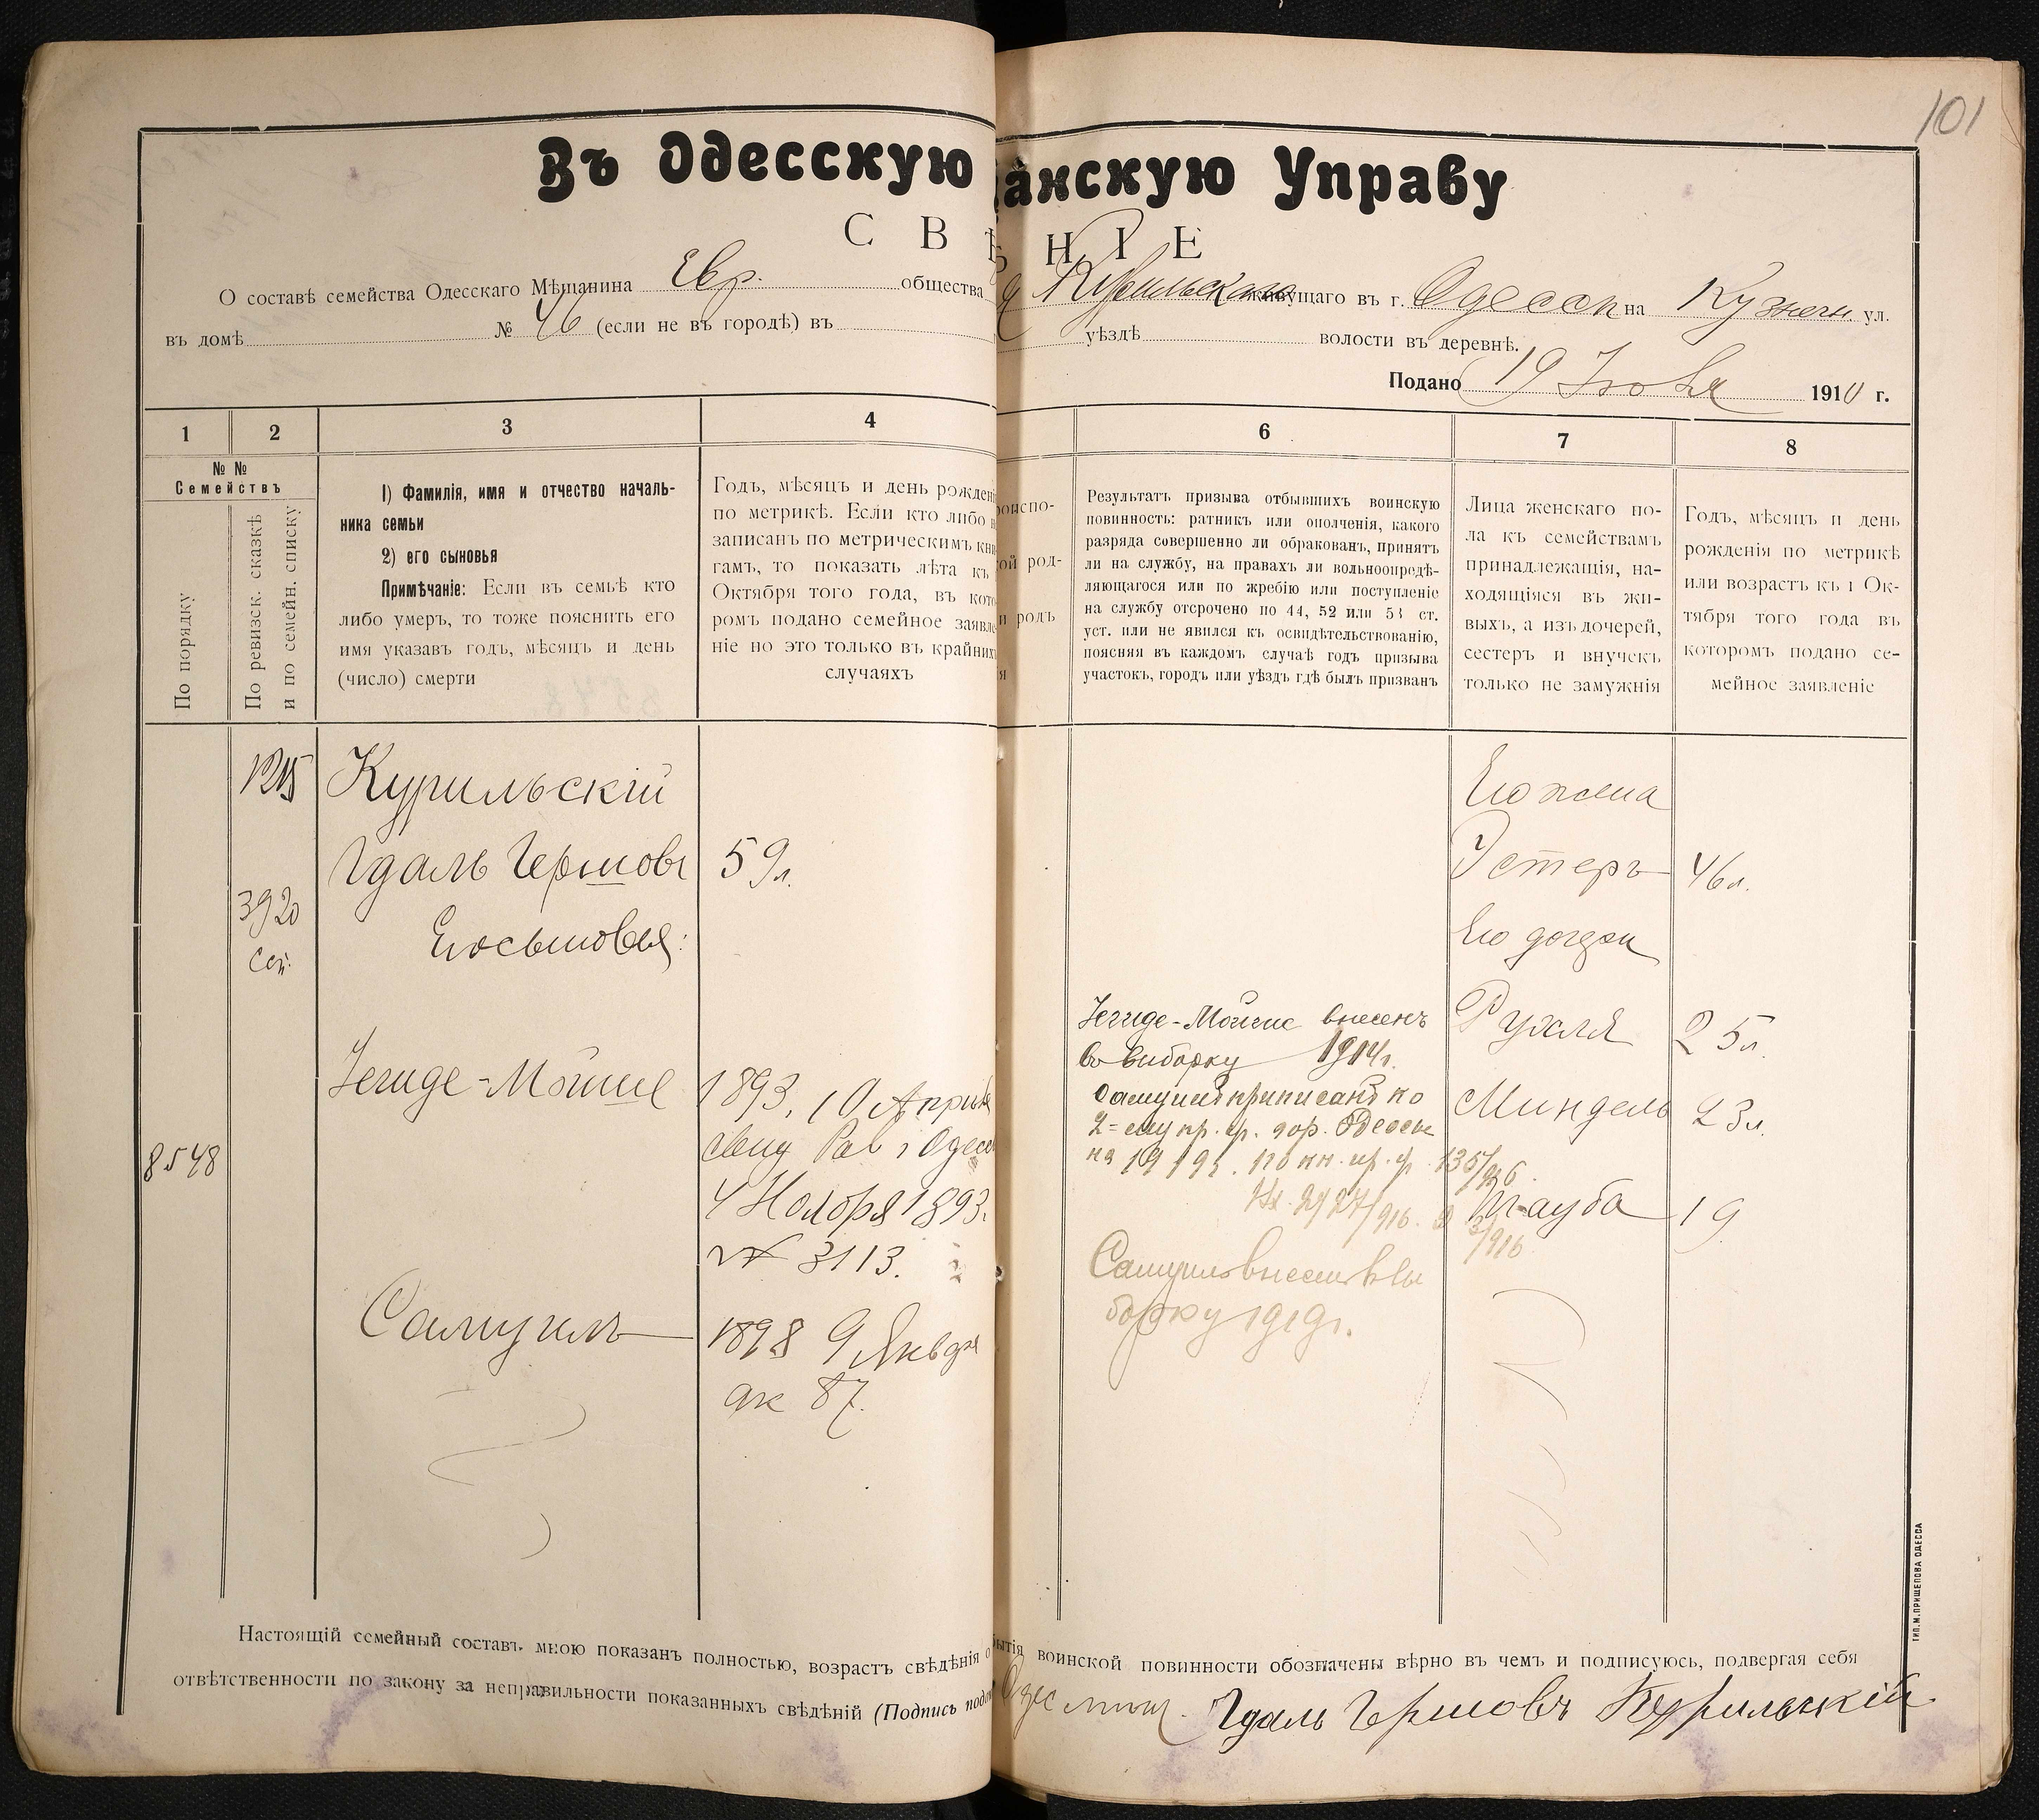 101
Въ Одесскую
анскую Управу
С В
Н І Е
О составѣ семейства Одесскаго Мѣщанина Евр. общества
Курильскаго живущаго въ г. Одессѣ на Кузнечн. ул.
въ домѣ № 46 (если не въ городѣ) въ
уѣздѣ волости въ деревнѣ.
Подано 19 1910 г.
1 2 3 4
6 7 8
№ №
Семействъ
По порядку
По ревизск. сказкѣ
и по семейн. списку
1) Фамилія, имя и отчество началь-
ника семьи
2) его сыновья
Примѣчаніе: Если въ семьѣ кто
либо умеръ, то тоже пояснить его
имя указавъ годъ, мѣсяцъ и день
(число) смерти
Годъ, мѣсяцъ и день рожденi
по метрикѣ. Если кто либо н
записанъ по метрическимъ кни
гамъ, то показать лѣта къ
Октября того года, въ кото
ромъ подано семейное заявле
ніе но это только въ крайних
случаяхъ
оиспо-
ой род-
и родъ
я
Результатъ призыва отбывшихъ воинскую
повинность: ратникъ или ополченія, какого
разряда совершенно ли обракованъ, принятъ
ли на службу, на правахъ ли вольноопредѣ-
ляющагося или по жребію или поступленіе
на службу отсрочено по 44, 52 или 53 ст.
уст. или не явился къ освидѣтельствованію,
поясняя въ каждомъ случаѣ годъ призыва
участокъ, городъ или уѣздъ гдѣ былъ призванъ
Лица женскаго по-
ла къ семействамъ
принадлежащія, на-
ходящіяся въ жи-
выхъ, а изъ дочерей,
сестеръ и внучекъ
только не замужнія
Годъ, мѣсяцъ и день
рожденія по метрикѣ
или возрастъ къ 1 Ок-
тября того года въ
которомъ подано се-
мейное заявленіе
1215 Курильскій
Гдаль Гершовъ 59 л.
3920
Его сыновья:
8548
Іегиде-Мойше 1893, 10 Апрѣл
свид Рав г Одесс
4 Ноября 1893.
№ 3113.
Самуилъ 1898 9 Январ
ак 87.
Іегиде-Мойше внесенъ
во выборку 1914 г.
Самуилъ приписанъ ко
2=му пр. уч. гор. Одессы
на 1919 г. по кн. пр. у. 135/916.
Самуилъ внесенъ въ вы
борку 1919 г.
Его жена
Эстеръ 46 л.
Его дочери
Рухля 25 л.
Миндель 23 л.
Тауба 19
Настоящій семейный составъ мною показанъ полностью, возрастъ свѣдѣнія о
бытія воинской повинности обозначены вѣрно въ чемъ и подписуюсь, подвергая себя
отвѣтственности по закону за неправильности показанныхъ свѣдѣній (Подпись подп
Одес мѣщ. Гдаль Гершовъ Курильскій
ТИП. М. ПРИЩЕПОВА ОДЕССА